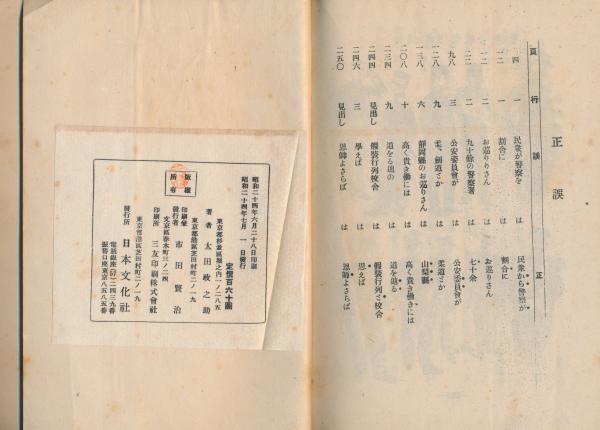 正誤
頁 行 誤 正
二四 一 民衆が警察を は 民衆から警察が
一二 一 割合に は 割合に
一二 二 お巡りりさん は お巡りさん
二二 二 九十餘の警察署 は 七十余
九八 三 公安委員會が は 公安委員會が
一二八 九 柔、劍道とか は 柔道とか
一三八 六 靜岡縣のお巡りさん は 山梨縣
二〇八 十 高く貴き働には は 高く貴き働きには
二三四 九 道をる迫の は 道を辿る
二四四 見出し 假裝行列校舍 は 假裝行列と校舍
二四六 三 學えば は 思えば
二五〇 見出し 恩師よさらば は 恩師よさらば
昭和二十四年六月二十八日印刷
昭和二十四年七月一日發行
定價百六十圓
東京都杉並區堀之内一ノ二八五
著者 太田政之助
東京都港區芝田村町二ノ一九
印刷兼發行者 市田賢治
文京區春木町三ノ二四
印刷所 三友印刷株式會社
東京都港區芝田村町二ノ一九
發行所 日本文化社
電話銀座(57)二四三九番
振替口座東京八五八五番
版權所有